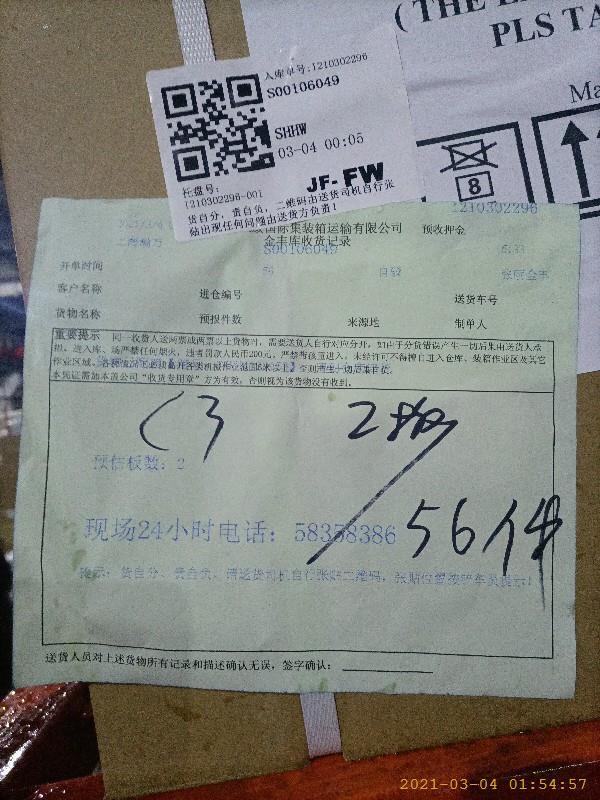 (THE
PLS TA
Ma
8
入库单号:1210302296
S00106049
SHHW
03-04 00:05
托盘号:
1210302296-001
JF-FW
货自分、责自负、二维码由送货司机自行张
贴出现任何问题由送货方负责!
1210302296
国际集装箱运输有限公司
预收押金
金丰库收货记录
S00106049
开单时间
56
自毅
客户名称
进仓编号
送货车号
货物名称
预报件数
来源地
制单人
重要提示
同一收货人送两票或两票以上货物时,需要送货人自行对应分开,如由于分货错误产生一切后果由送货人承
担。进入库、场严禁任何烟火,违者罚款人民币200元,严禁带孩童进入。未经许可不得擅自进入仓库、装箱作业区及其它
作业区域。
否则产生一切后果自负。
本凭证需加本盖公司“收货专用章”方为有效,否则视为该货物没有收到。
C3
2板
预估板数:2
56件
现场24小时电话:58358386
提示:货自分、责自负、请送货司机自行张贴二维码,张贴位置按铲车员提示!
送货人员对上述货物所有记录和描述确认无误,签字确认:
2021-03-04 01:54:57